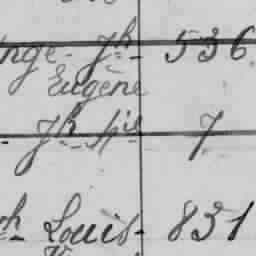 nge - Jh - 536
Eugène
- Jh pie 7
ph - Louis - 831